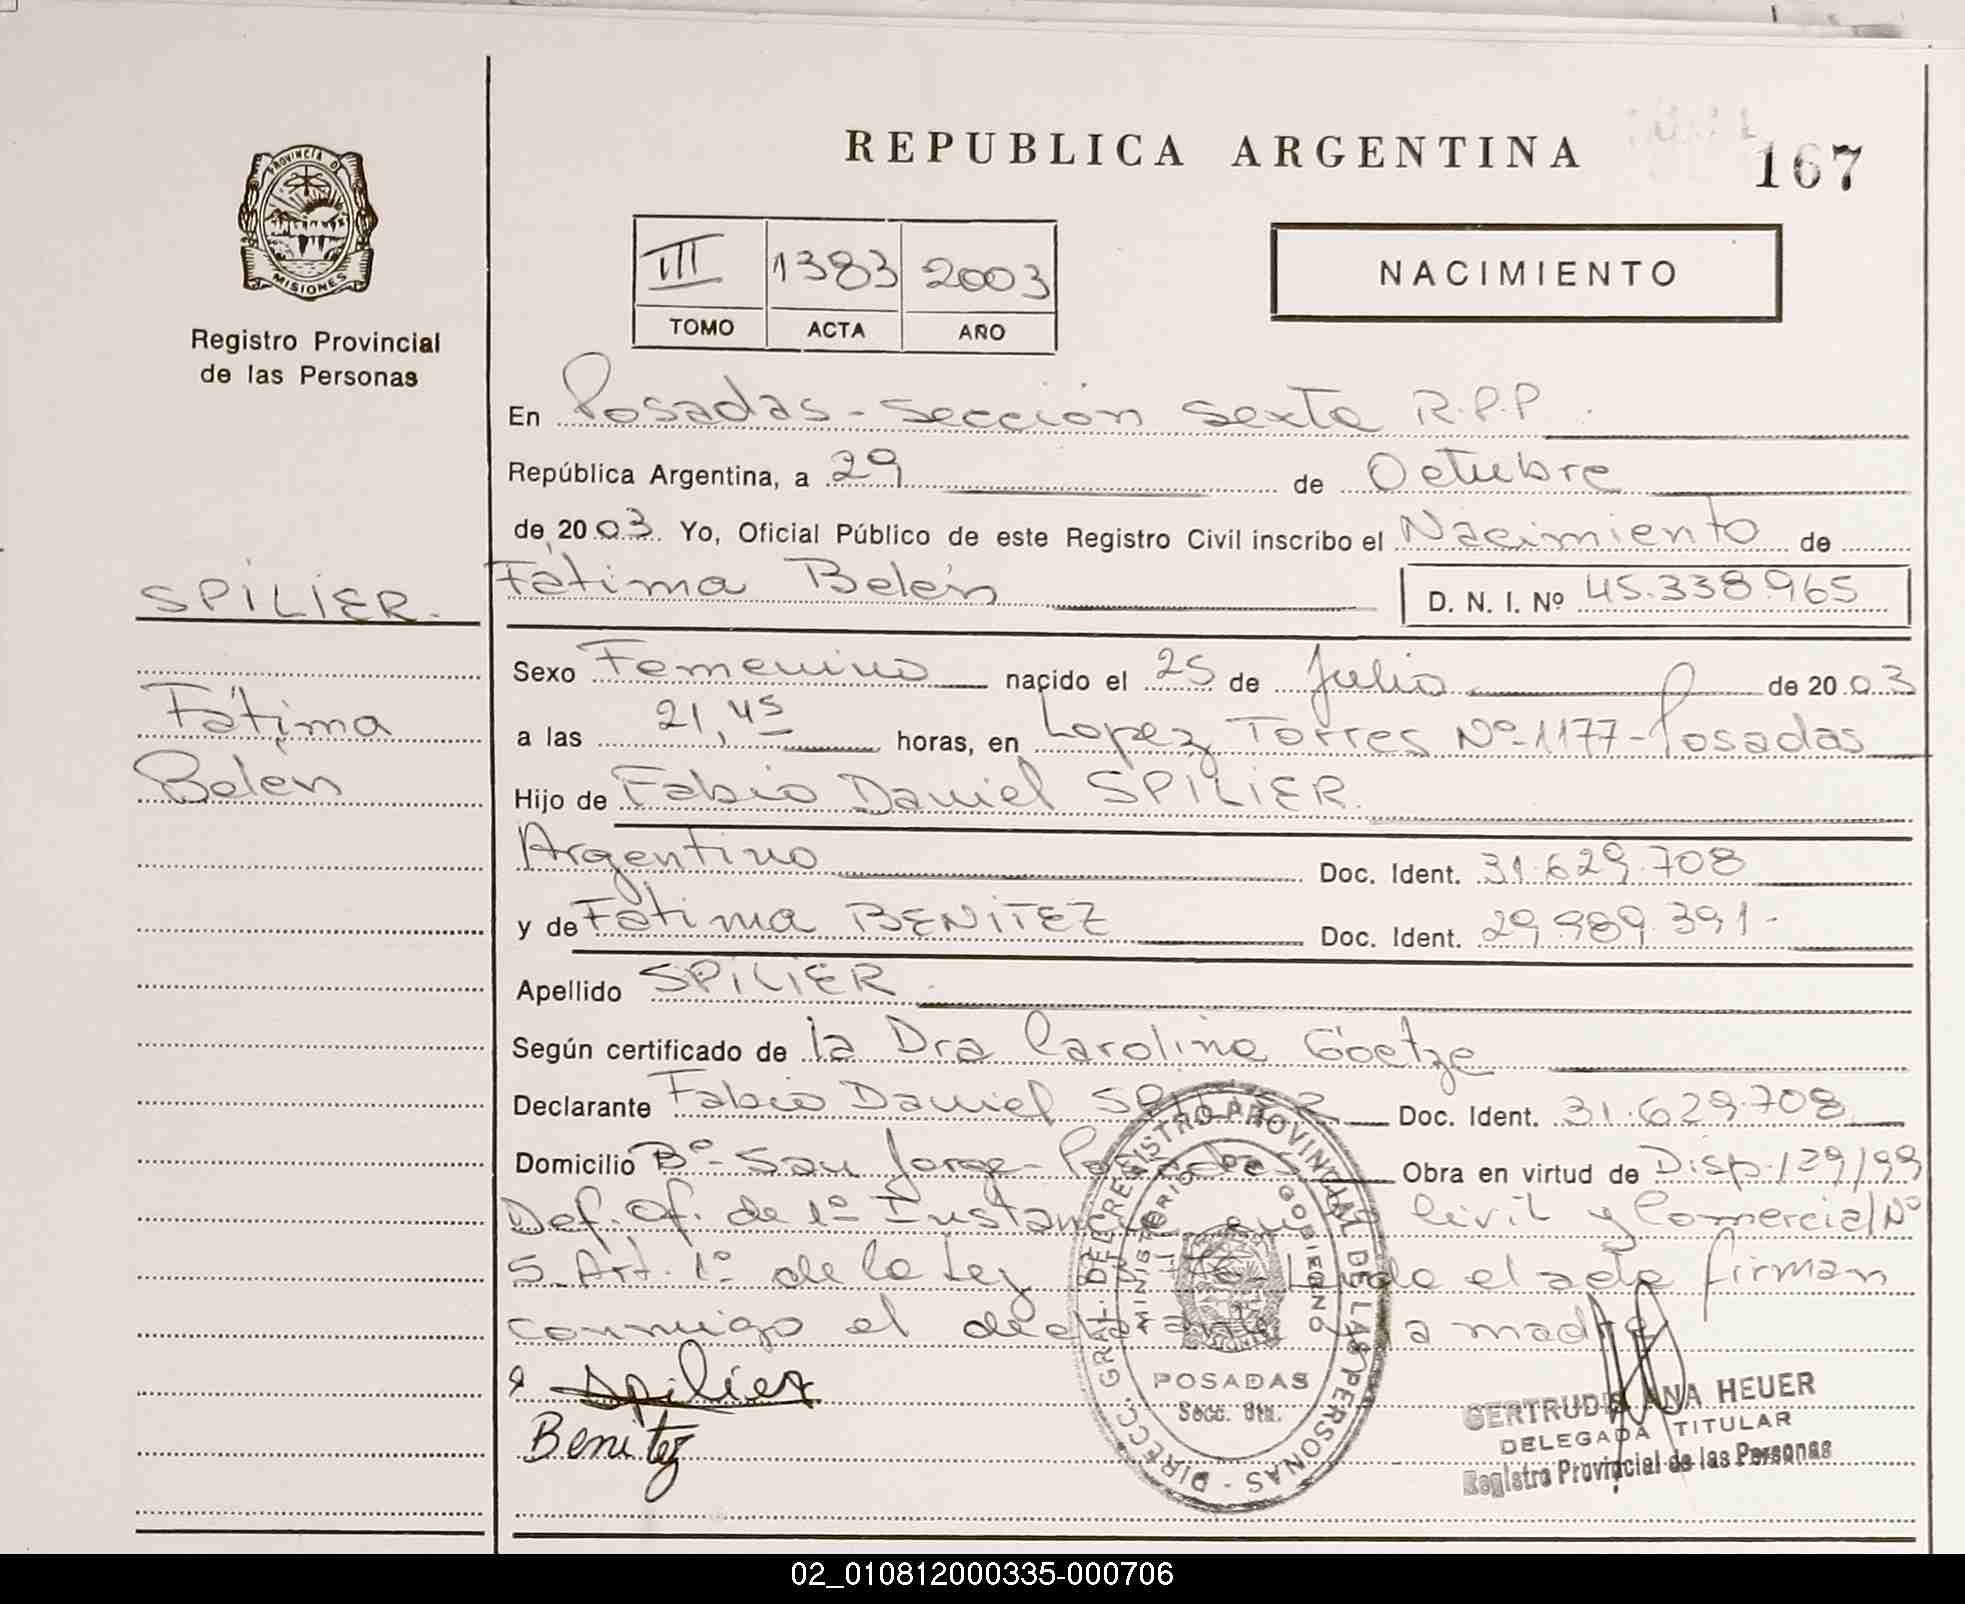 REPUBLICA ARGENTINA
167
PROVINCIA DE
MISIONES
Registro Provincial
de las Personas
III 1383 2003
TOMO ACTA AÑO
NACIMIENTO
En Posadas - Sección Sexta R.P.P.
República Argentina, a 29 de Octubre
de 2003. Yo, Oficial Público de este Registro Civil inscribo el Nacimiento de
SPILIER.
Fátima Belén
D. N. I. Nº 45.338.965
Sexo Femenino nacido el 25 de Julio de 2003
Fátima
a las 21,45 horas, en Lopez Torres Nº 1177 - Posadas
Belén
Hijo de Fabio Daniel SPILIER.
Argentino Doc. Ident. 31.629.708
y de Fátima BENITEZ Doc. Ident. 29.989.391-
Apellido SPILIER
Según certificado de la Dra Carolina Goetze
Declarante Fabio Daniel SPILIER Doc. Ident. 31.629.708
Domicilio Bº San Jorge - Posadas Obra en virtud de Disp. 129/99
Def. Of. de 1º Instancia Civil y Comercial Nº
5 Art. 1º de la Ley el acta firman
conmigo el declarante y la madre
Spilier
Benitez
DIRECC. GRAL. DEL REGISTRO PROVINCIAL DE LAS PERSONAS -
MINISTERIO DE GOBIERNO
POSADAS
Secc. 6ta.
GERTRUDIS ANA HEUER
DELEGADA TITULAR
Registro Provincial de las Personas
02_010812000335-000706